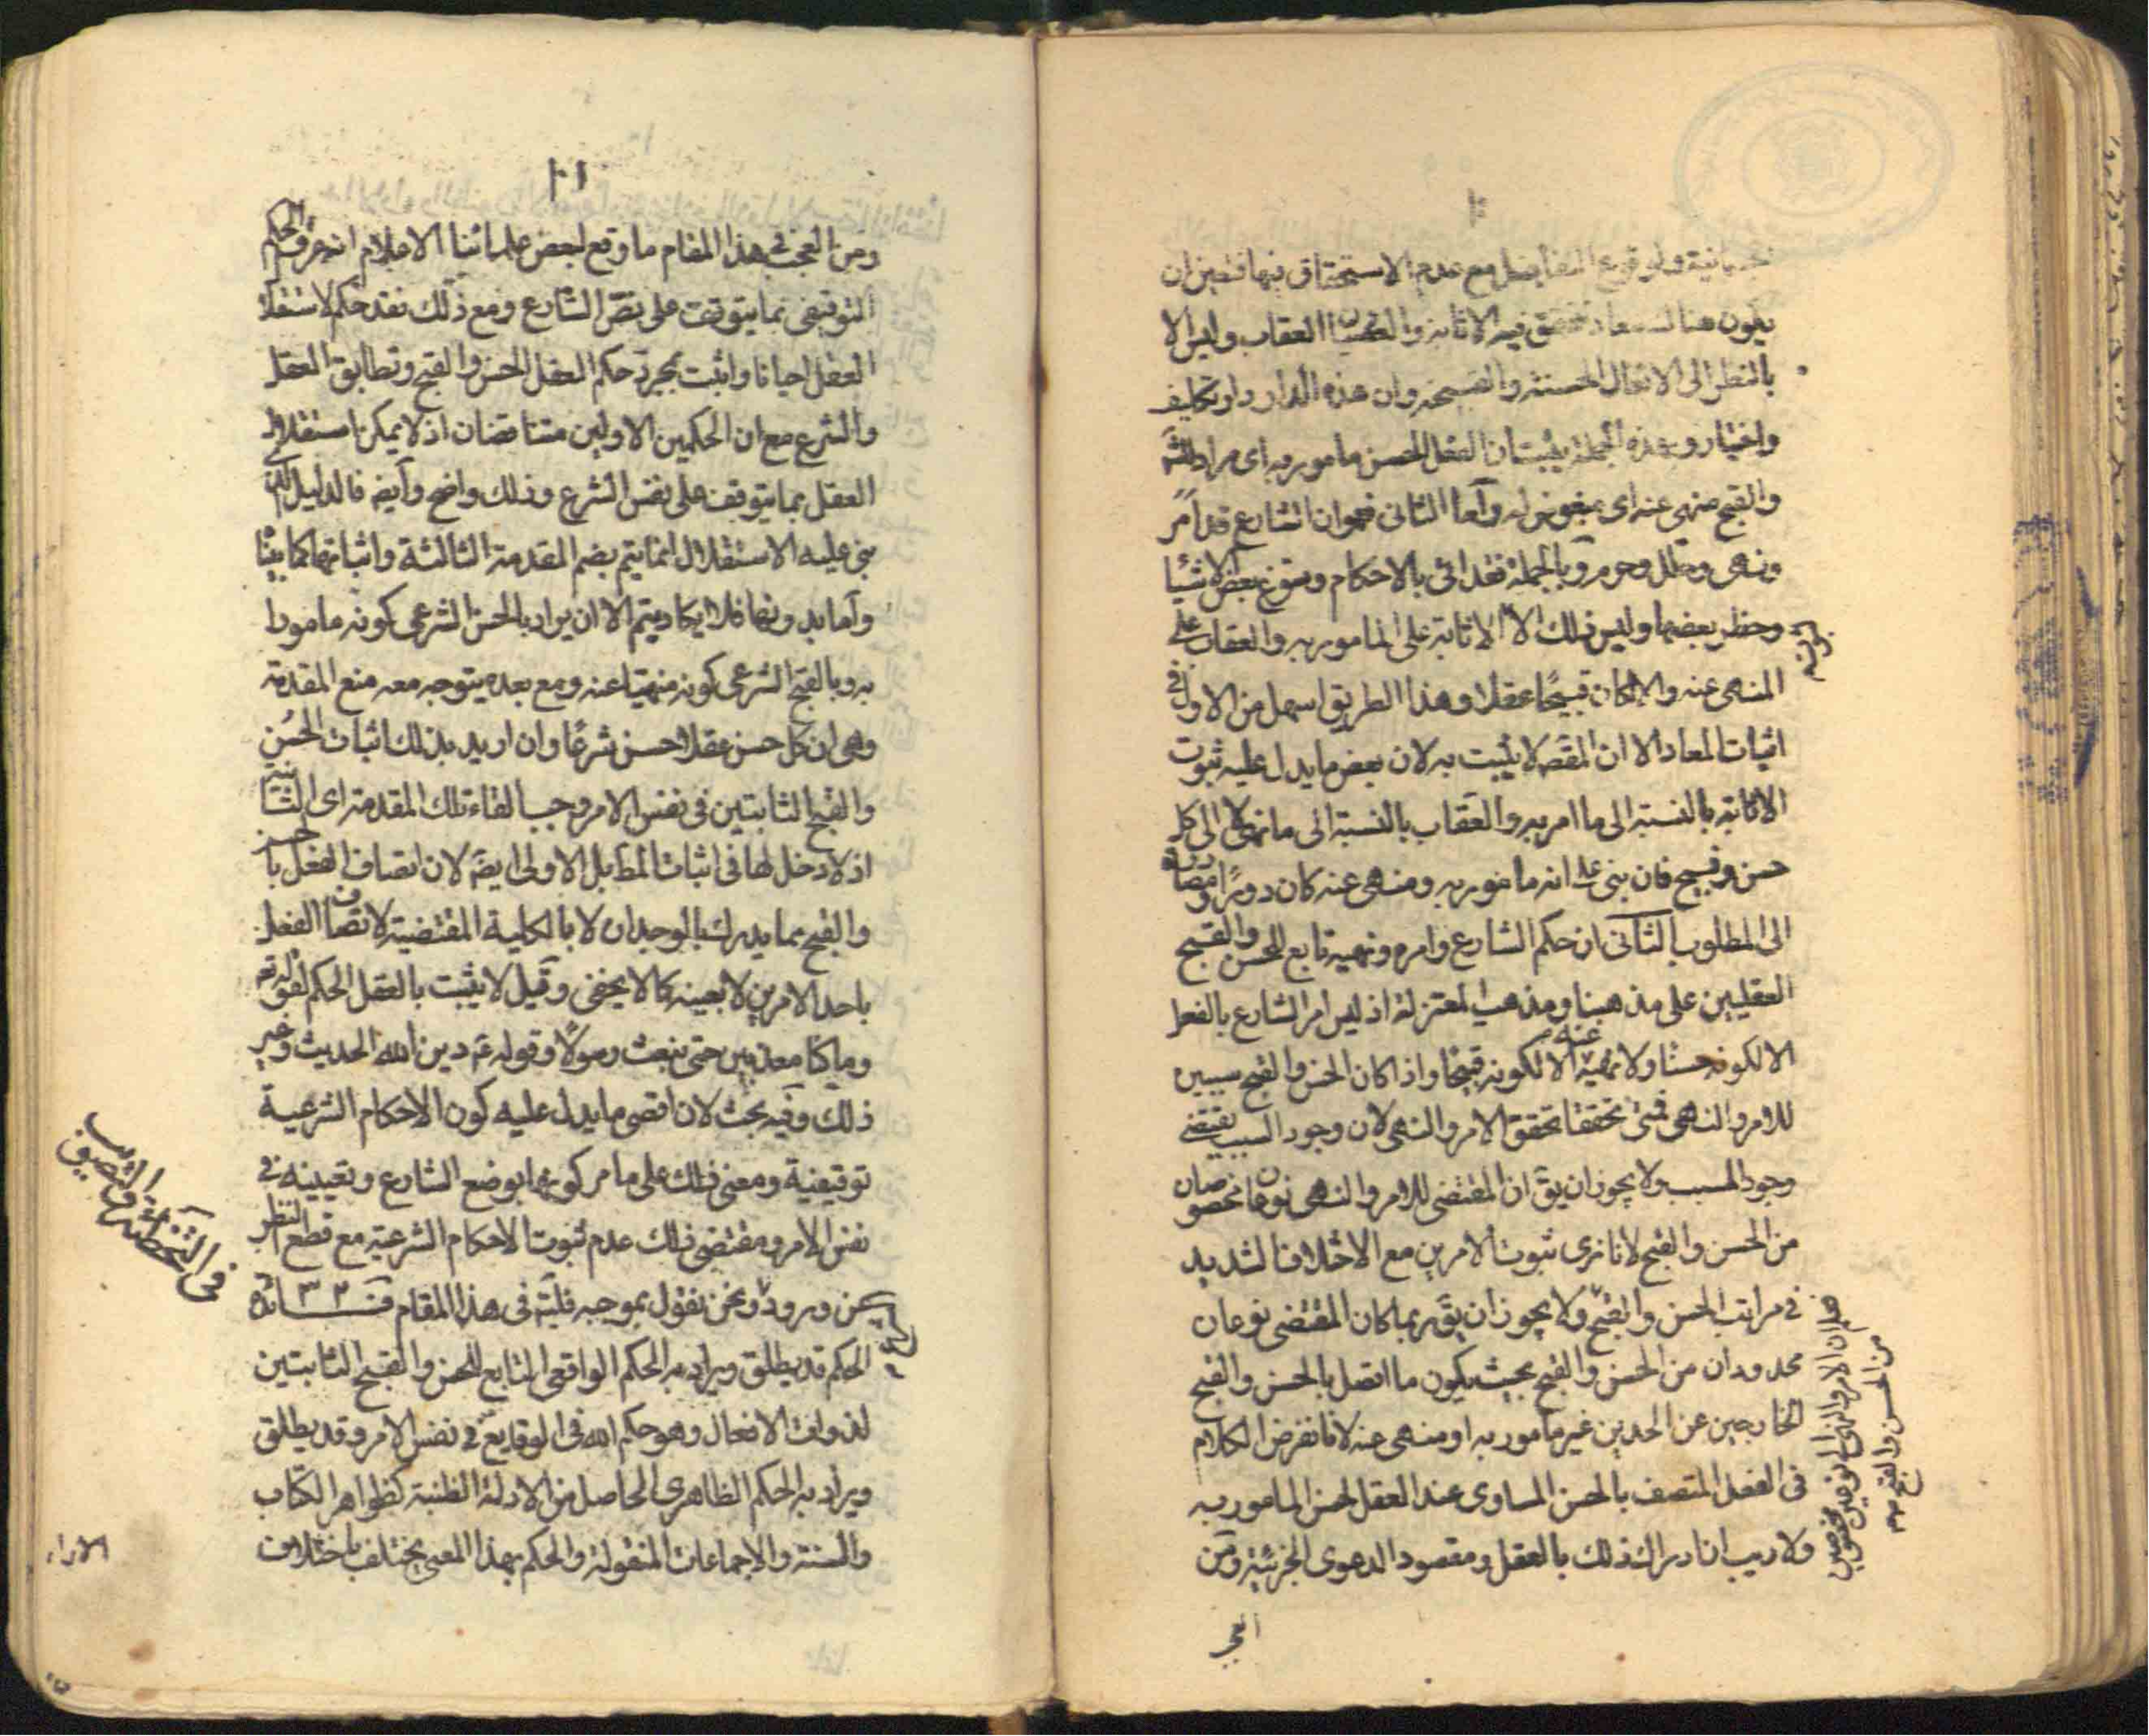 ولوقوع التفاضل مع عدم الاستحقاق فيها فتعين ان
يكون هنا معاد تتحقق فيه الاثابة والعقاب وليس الا
بالنظر الى الافعال الحسنة والقبيحة وان هذه الدار دار تكليف
واختيار وبهذه الجملة يثبت ان الفعل الحسن مامور به اى مراد
والقبيح منهى عنه اى مبغوض له وآما الثانى فهو ان الشارع قد امر
ونهى وحلل وحرم وبالجملة فقد اتى بالاحكام وسوغ بعض الاشيا
وحظر بعضها وليس ذلك الا الاثابة على المامور به والعقاب على
المنهى عنه والا لكان قبيحًا عقلا وهذا الطريق اسهل من الاول فى
اثبات المعاد الا ان المقصَ لا يثبت به لان بعض ما يدل عليه ثبوت
الاثابة بالنسبة الى ما امر به والعقاب بالنسبة الى ما نهى لا الى كل
حسن وقبيح فان بنى على انه مامور به ومنهى عنه كان دورًا ومصادرة
الى المطلوب الثانى ان حكم الشارع وامره ونهيه تابع للحسن والقبيح
العقليين على مذهبنا ومذهب المعتزلة اذ ليس امر الشارع بالفعل
الا لكونه حسنًا ولا نهيه عنه الا لكونه قبيحًا واذا كان الحسن والقبح سببين
للامر والنهى فمتى تحققا تحقق الامر والنهى لان وجود السبب يقتضى
وجود المسبب ولا يجوز ان يقَ ان المقتضى للامر والنهى نوعان مخصوصان
من الحسن والقبح لانا نرى ثبوت الامرين مع الاختلاف الشديد
فى مراتب الحسن والقبح ولا يجوز ان يقَ ربما كان المقتضى نوعان
محدودان من الحسن والقبح بحيث يكون ما اتصل بالحسن والقبح
الخارجين عن الحدين غير مامور به او منهى عنه لانا نفرض الكلام
فى الفعل المتصف بالحسن المساوى عند العقل لحسن المامور به
ولا ريب ان ادراك ذلك بالعقل ومقصود الدعوى الجزئية ومن
من الحسن والقبح
العجب
١١
ومن العجب فى هذا المقام ما وقع لبعض علمائنا الاعلام انه عرف الحكم
التوقيفى بما يتوقف على نص الشارع ومع ذلك فقد حكم لاستقلال
العقل احيانا واثبت بمجرد حكم العقل الحسن والقبح وتطابق العقل
والشرع مع ان الحكمين الاولين متناقضان اذ لا يمكن استقلال
العقل بما يتوقف على نفس الشرع وذلك واضح وآيضَ فالدليل الذى
بنى عليه الاستقلال انما يتم بضم المقدمة الثالثة واثباتها كما بيّنا
وآما بدونها فلا يكاد يتم الا ان يراد بالحسن الشرعى كونه مامورا
به وبالقبح الشرعى كونه منهيًا عنه ومع بعده يتوجه معه منع المقدمة
وهى ان كل حسن عقلا حسن شرعًا وان اريد بذلك اثبات الحُسن
والقبح الثابتين فى نفس الامر وجب القاء تلك المقدمة اى الثانية
اذ لا دخل لها فى اثبات المطَ بل الاولى ايضَ لان اتصاف الفعل بالحسن
والقبح مما يدرك بالوجدان لا بالكلية المقتضية لاتصاف الفعل
باحد الامرين لا بعينه كما لا يخفى وقيل لا يثبت بالعقل الحكم لقوله تع
وما كنا معذبين حتى نبعث رسولًا وقوله عَ دين الله الحديث وغير
ذلك وفيه بحث لان اقصى ما يدل عليه كون الاحكام الشرعية
توقيفية ومعنى ذلك على ما مر كونها بوضع الشارع وتعيينه فى
نفس الامر ومقتضى ذلك عدم ثبوت الاحكام الشرعية مع قطع النظر
عن وروده ونحن نقول بموجبه فليتم فى هذا المقام فـــائدة
الحكم قد يطلق ويراد به الحكم الواقعى التابع للحسن والقبح الثابتين
لذوات الافعال وهو حكم الله فى الوقايع فى نفس الامر وقد يطلق
ويراد به الحكم الظاهرى الحاصل من الادلة الظنية كظواهر الكتاب
والسنة والاجماعات المنقولة والحكم بهذا المعنى يختلف باختلاف
فى التخطئة والتصويب
الاراء